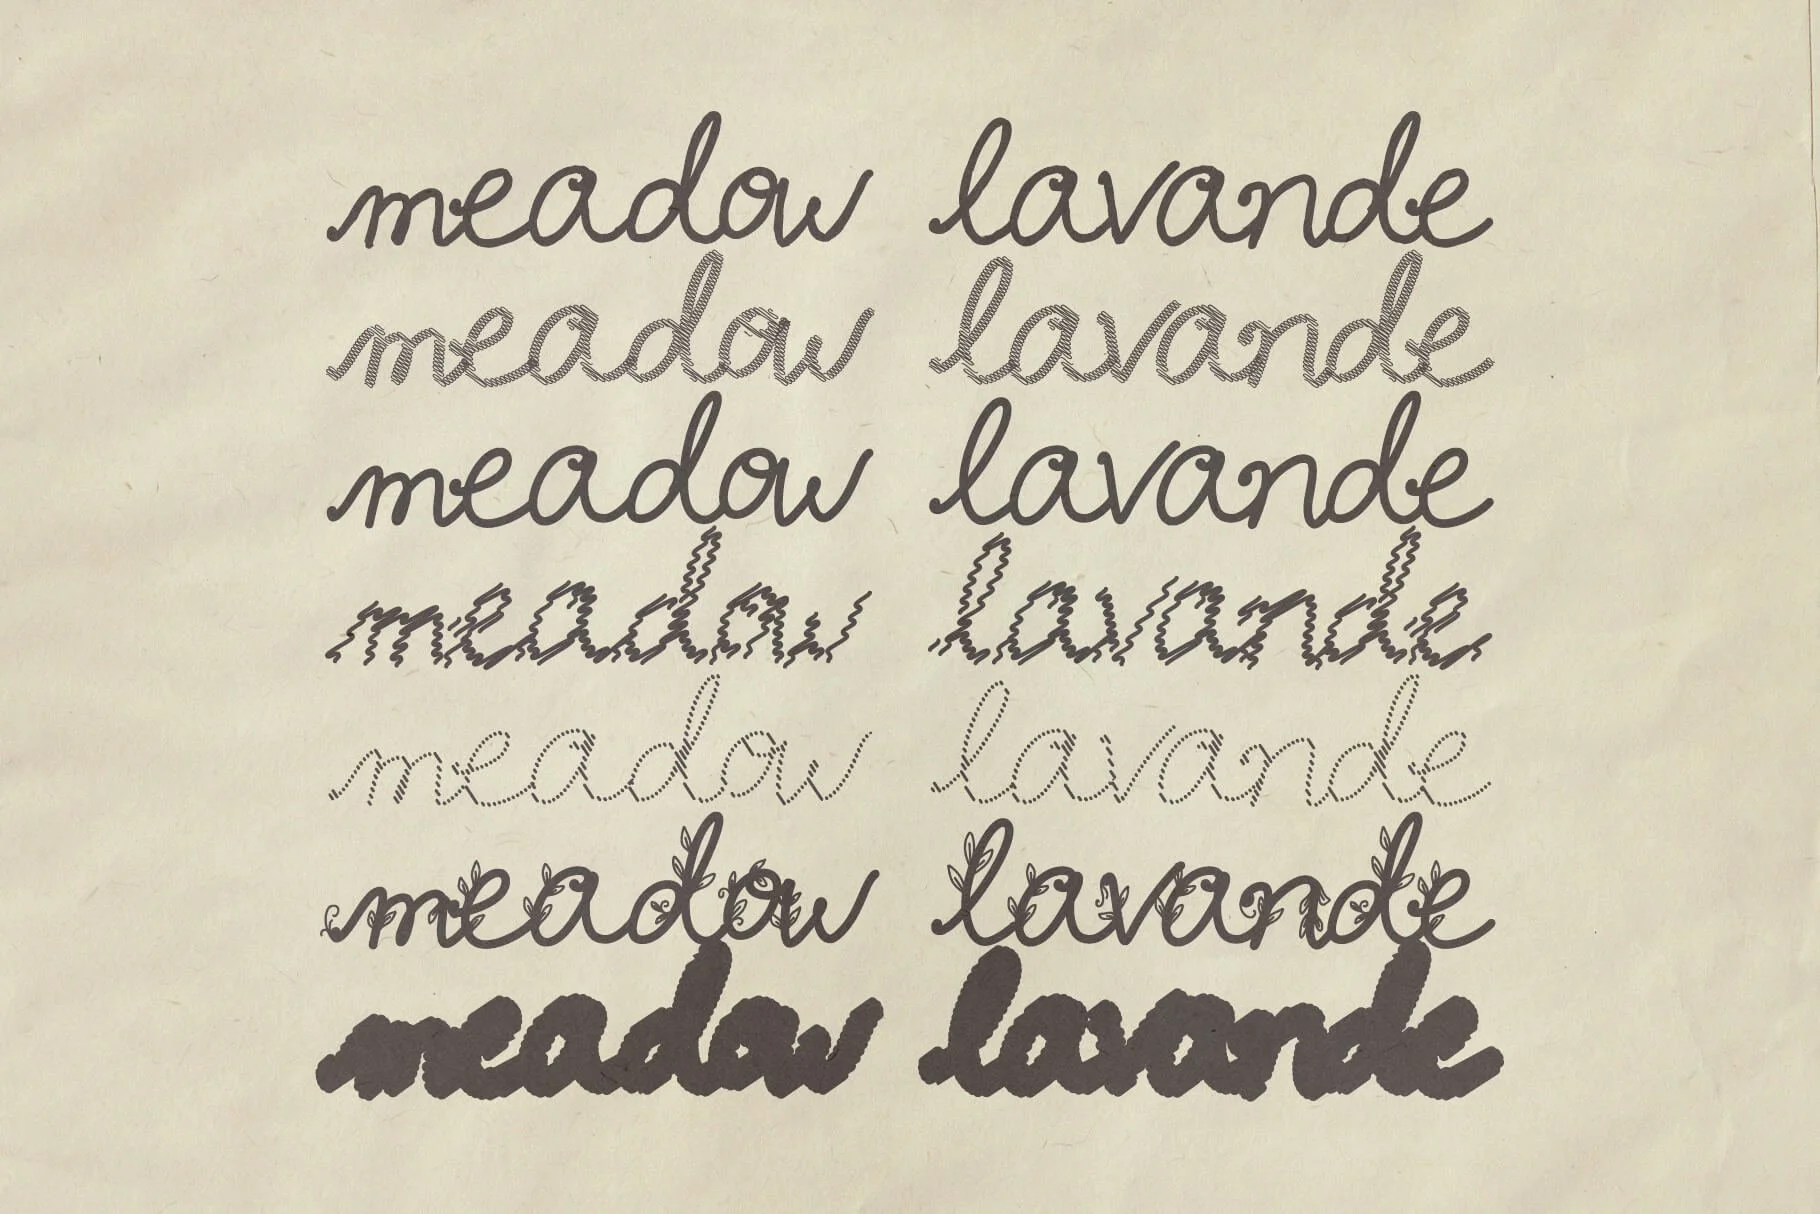 meadow lavande
meadow lavande
meadow lavande
meadow lavande
meadow lavande
meadow lavande
meadow lavande